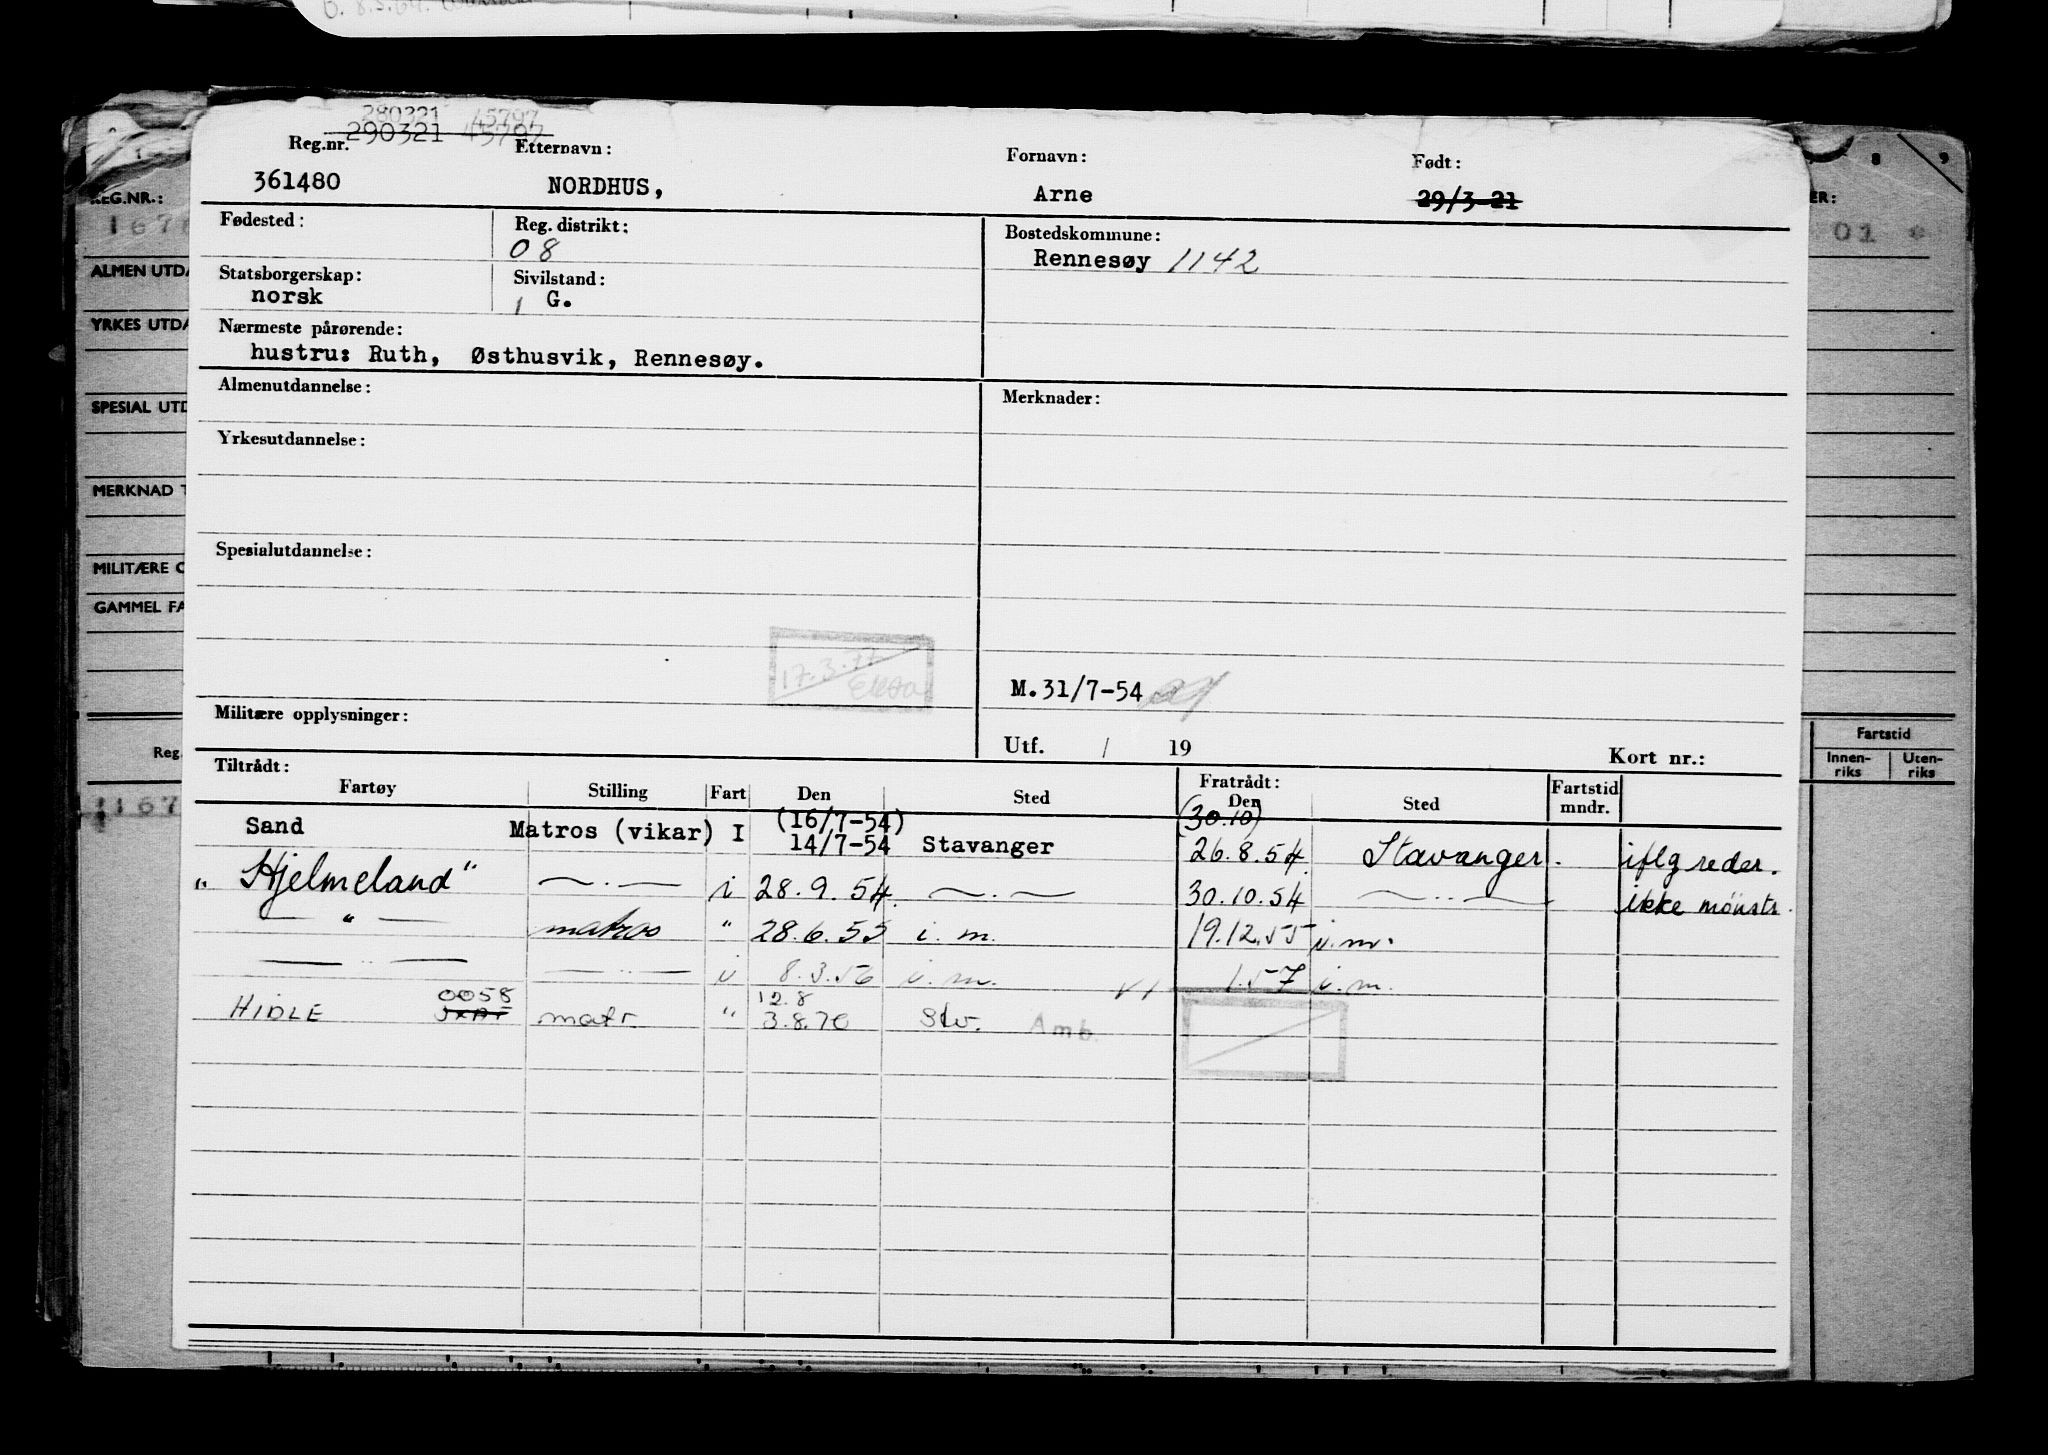 280321 45797
290321 45797
Reg.nr. Etternavn: Fornavn: Født:
361480 NORDHUS, Arne 29/3-21
Fødested: Reg. distrikt: Bostedskommune:
08 Rennesøy 1142
Statsborgerskap: Sivilstand:
norsk 1 G.
Nærmeste pårørende:
hustru: Ruth, Østhusvik, Rennesøy.
Almenutdannelse: Merknader:
Yrkesutdannelse:
Spesialutdannelse:
17.3.77
M.31/7-54
Militære opplysninger:
Utf. / 19 Kort nr.:
Tiltrådt: Fratrådt:
Fartøy Stilling Fart Den Sted Den Sted Fartstid mndr.
(16/7-54) (30.10)
Sand Matros (vikar) I 14/7-54 Stavanger 26.8.54 Stavanger. iflg reder.
"Hjelmeland" —.— i 28.9.54. —.— 30.10.54 —..— ikke mønstr.
— " — matros " 28.6.55 i.m. 19.12.55 i.m.
— .. — — .. — i 8.3.56 i.m. 1.57 i.m.
0058 12.8
HIDLE matr. " 3.8.70 Stv. Amb.
REG.NR.:
167
ALMEN UTDA
YRKES UTDA
SPESIAL UTD
MERKNAD T
MILITÆRE O
GAMMEL FA
Reg.
1167
8 9
ER:
01 *
Fartstid
Innen-riks Uten-riks